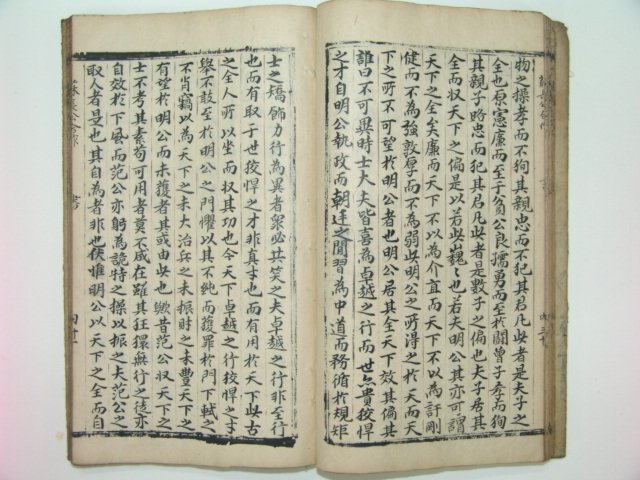 物之操孝而不狥其親忠而不犯其君凡此者是夫子之
全也原憲廉而至于貧公良孺勇而至於鬪曾子孝而狥
其親子路忠而犯其君凡此者是數子之偏也夫子居其
全而收天下之偏是以若此巍〻也若夫明公其亦可謂
天下之全矣廉而天下不以為介直而天下不以為訐剛
健而不為強敦厚而不為弱此明公之所得之於天而天
下之所不可望於明公者也明公居其全天下效其偏其
誰曰不可異時士大夫皆喜為卓越之行而世亦貴狡悍
之才自明公執政而朝廷之間習為中道而務循於規矩
士之矯飾力行為異者衆必共笑之夫卓越之行非至行
也而有取于世狡悍之才非真才也而有用於天下此古
之全人所以坐而收其功也今天下卓越之行狡悍之才
舉不敢至於明公之門懼以其不純而獲罪於門下軾之
不肖竊以為天下之未大治兵之未振財之未豐天下之
有望於明公而未獲者其或由此也歟昔范公收天下之
士不考其素苟可用者莫不咸在雖其狂獧無行之徒亦
自效於下風而范公亦躬為詭特之操以振之夫范公之
取人者是也其自為者非也伏惟明公以天下之全而自